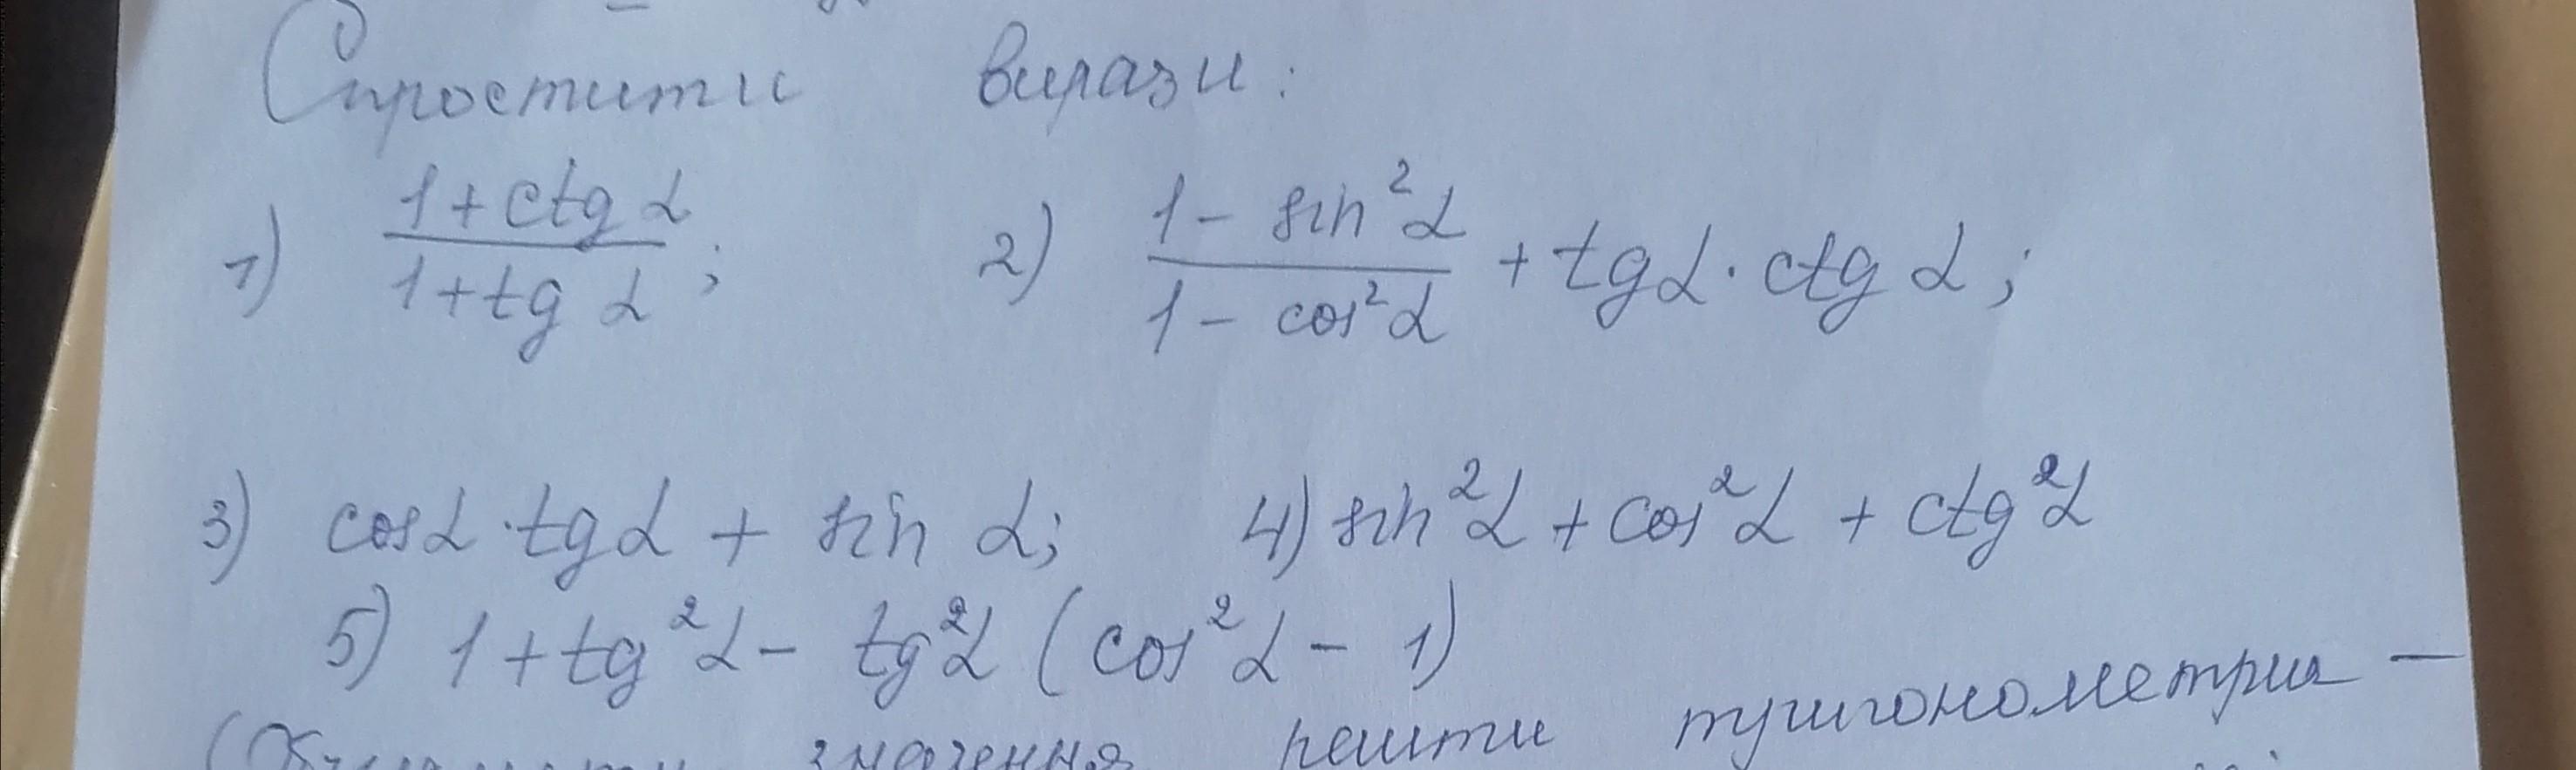 Спростити вирази:
1) (1 + ctg α) / (1 + tg α) ; 2) (1 - sin²α) / (1 - cos²α) + tg α · ctg α ;
3) cos α · tg α + sin α; 4) sin²α + cos²α + ctg²α
5) 1 + tg²α - tg²α (cos²α - 1)
значення решти тригонометрич-